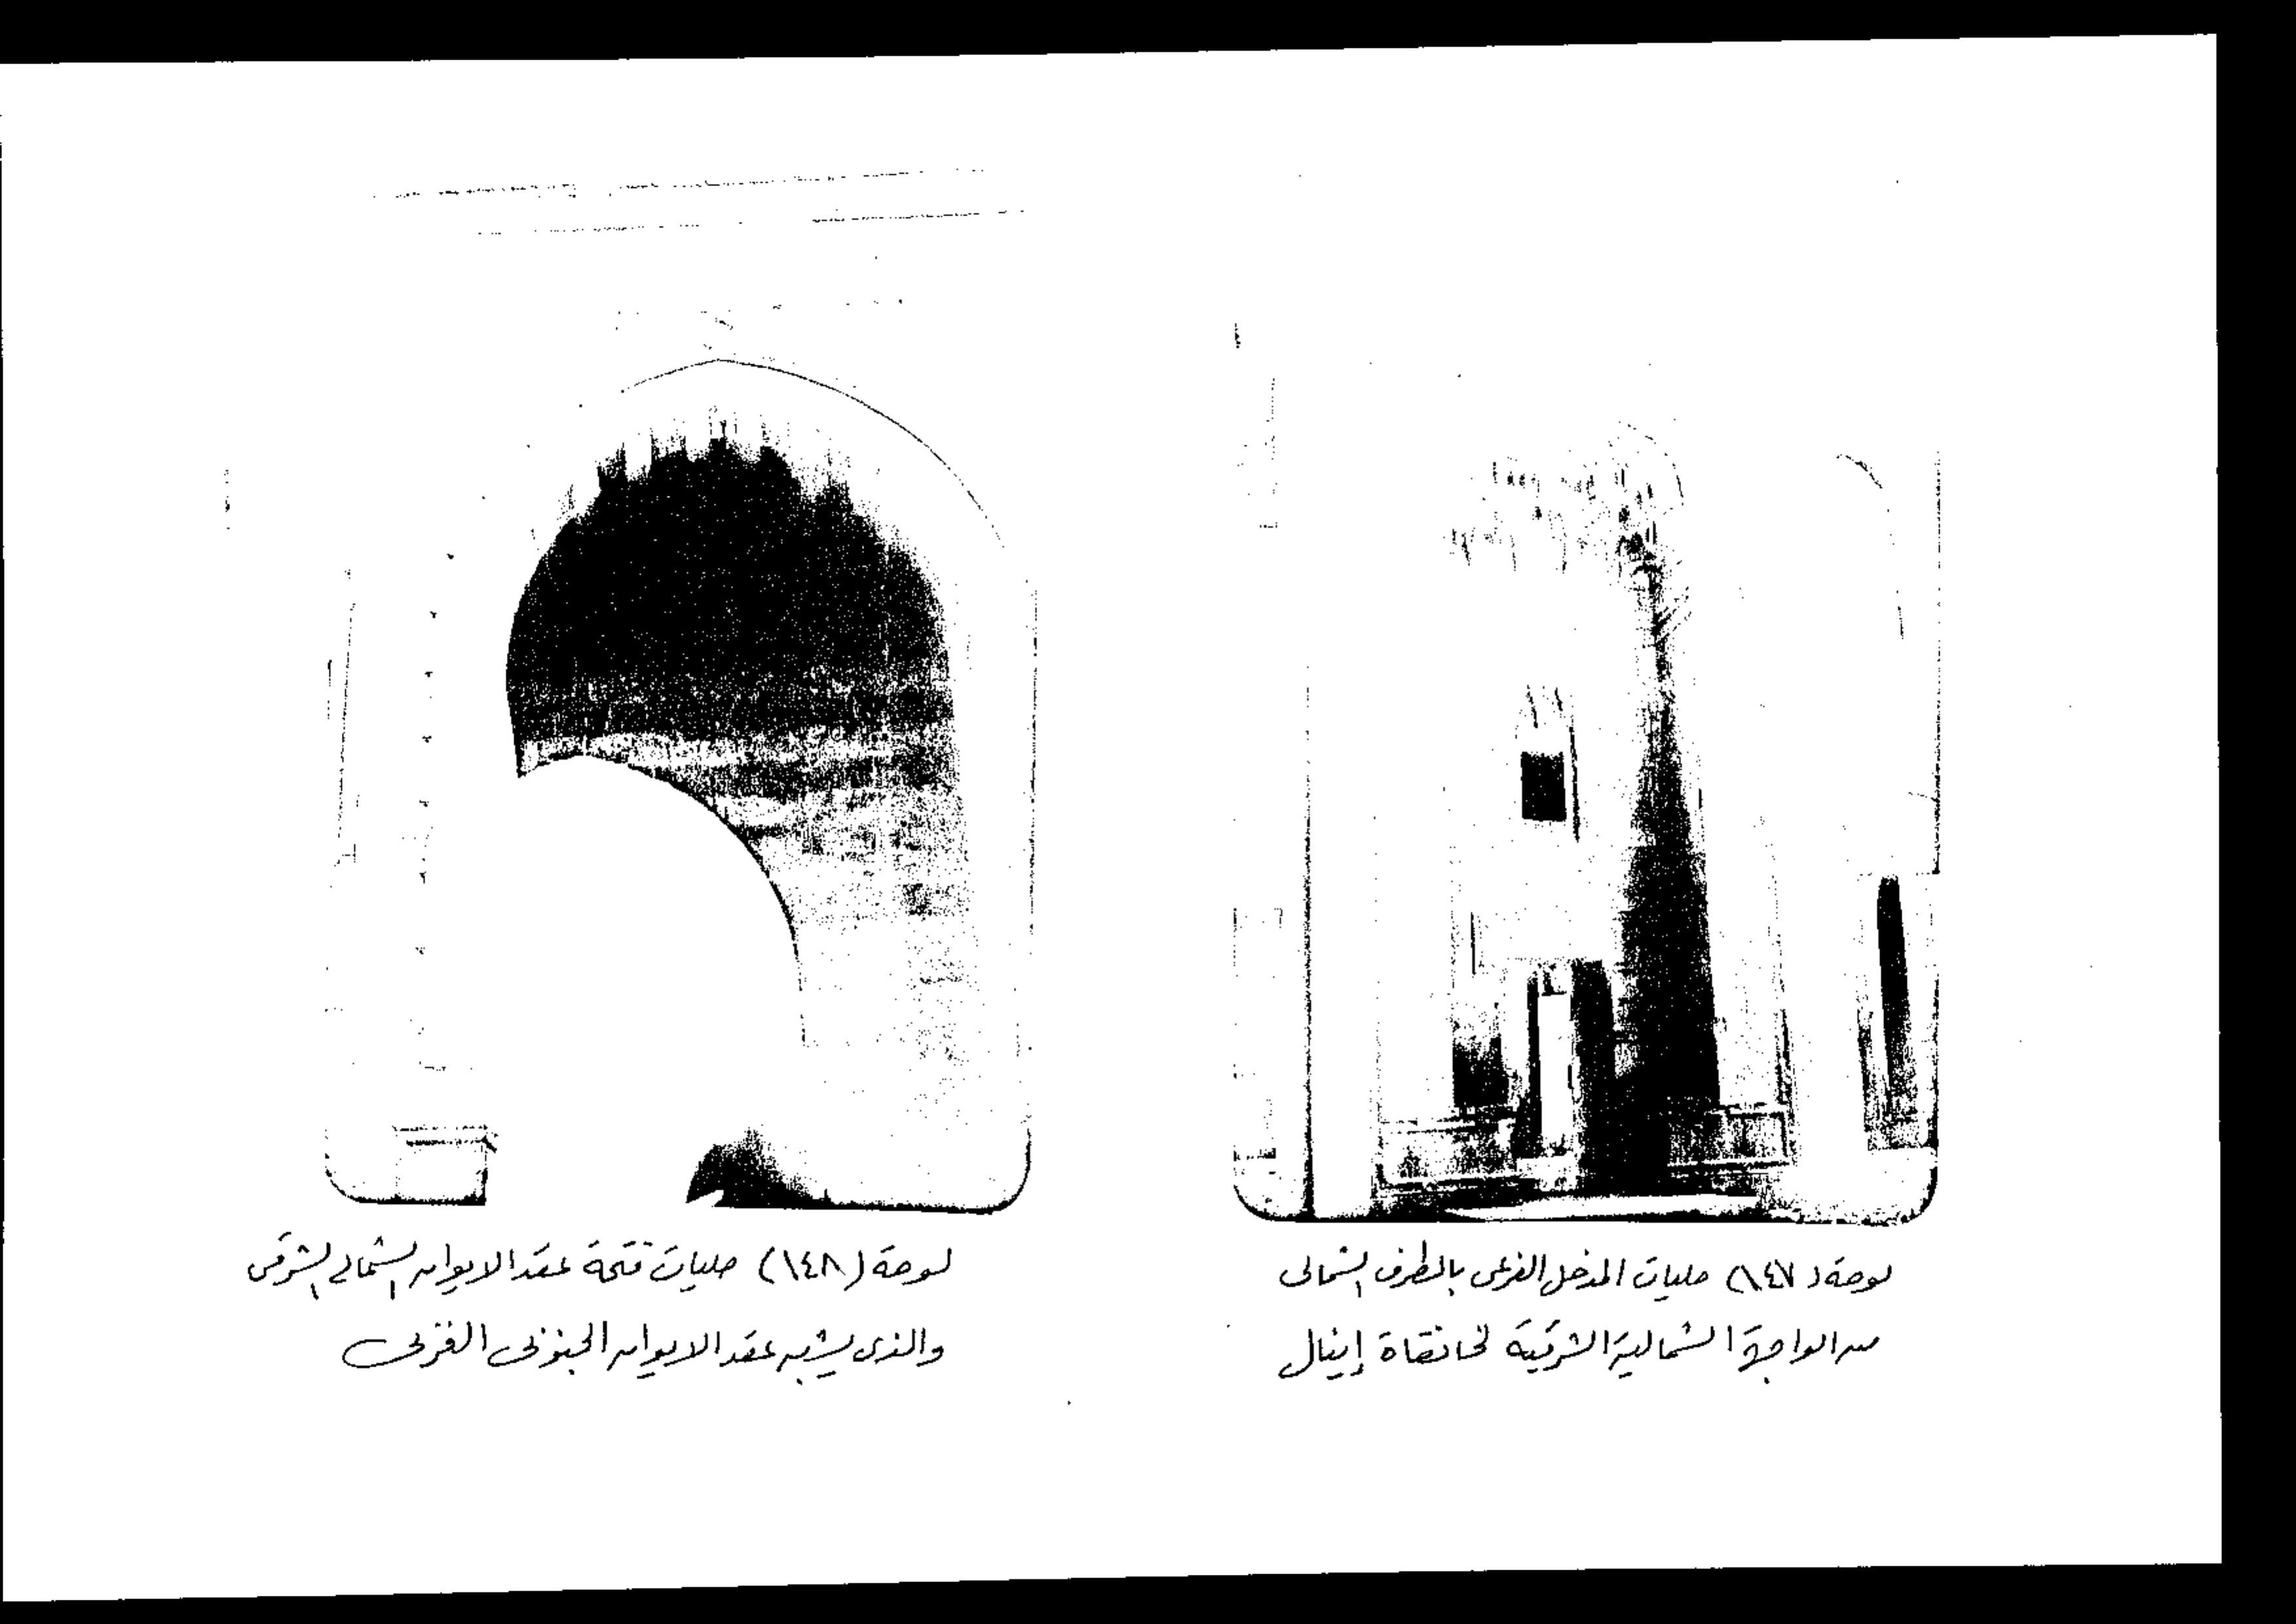 لوحة (١٤٧) حليات المدخل الفرعى بالطرف الشمالى
من الواجهة الشمالية الشرقية لخانقاة إينال
لوحة (١٤٨) حليات فتحة عقد الايوان الشمالى الشرقى
والذى يشبه عقد الايوان الجنوبى الغربى